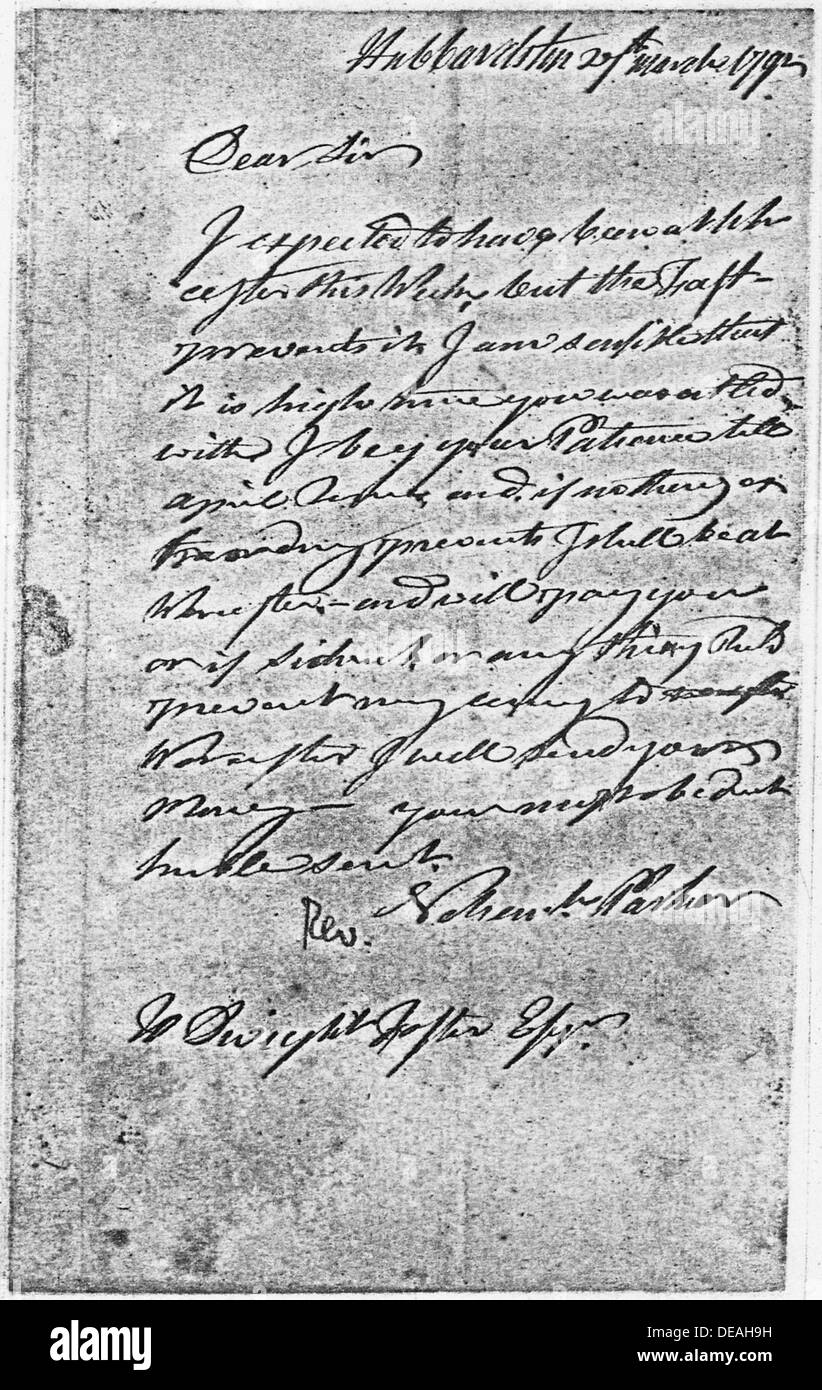 Hubbardston 27th March 1792
Dear Sir
I expected to have been at
cester this Week, but the Fast
prevents it, I am sensible that
it is high time you was
with I beg your Patience till
april Term and if nothing ex
prevents I shall be at
Worcester – and will pay you
or if sickness or any thing
prevent my coming to
Worcester I will send your
Money – your most obedient
humble servt.
Rev. Nehemh Parker
To Dwight Foster Esqr.
alamy
alamy
alamy
Image ID: DEAH9H
www.alamy.com